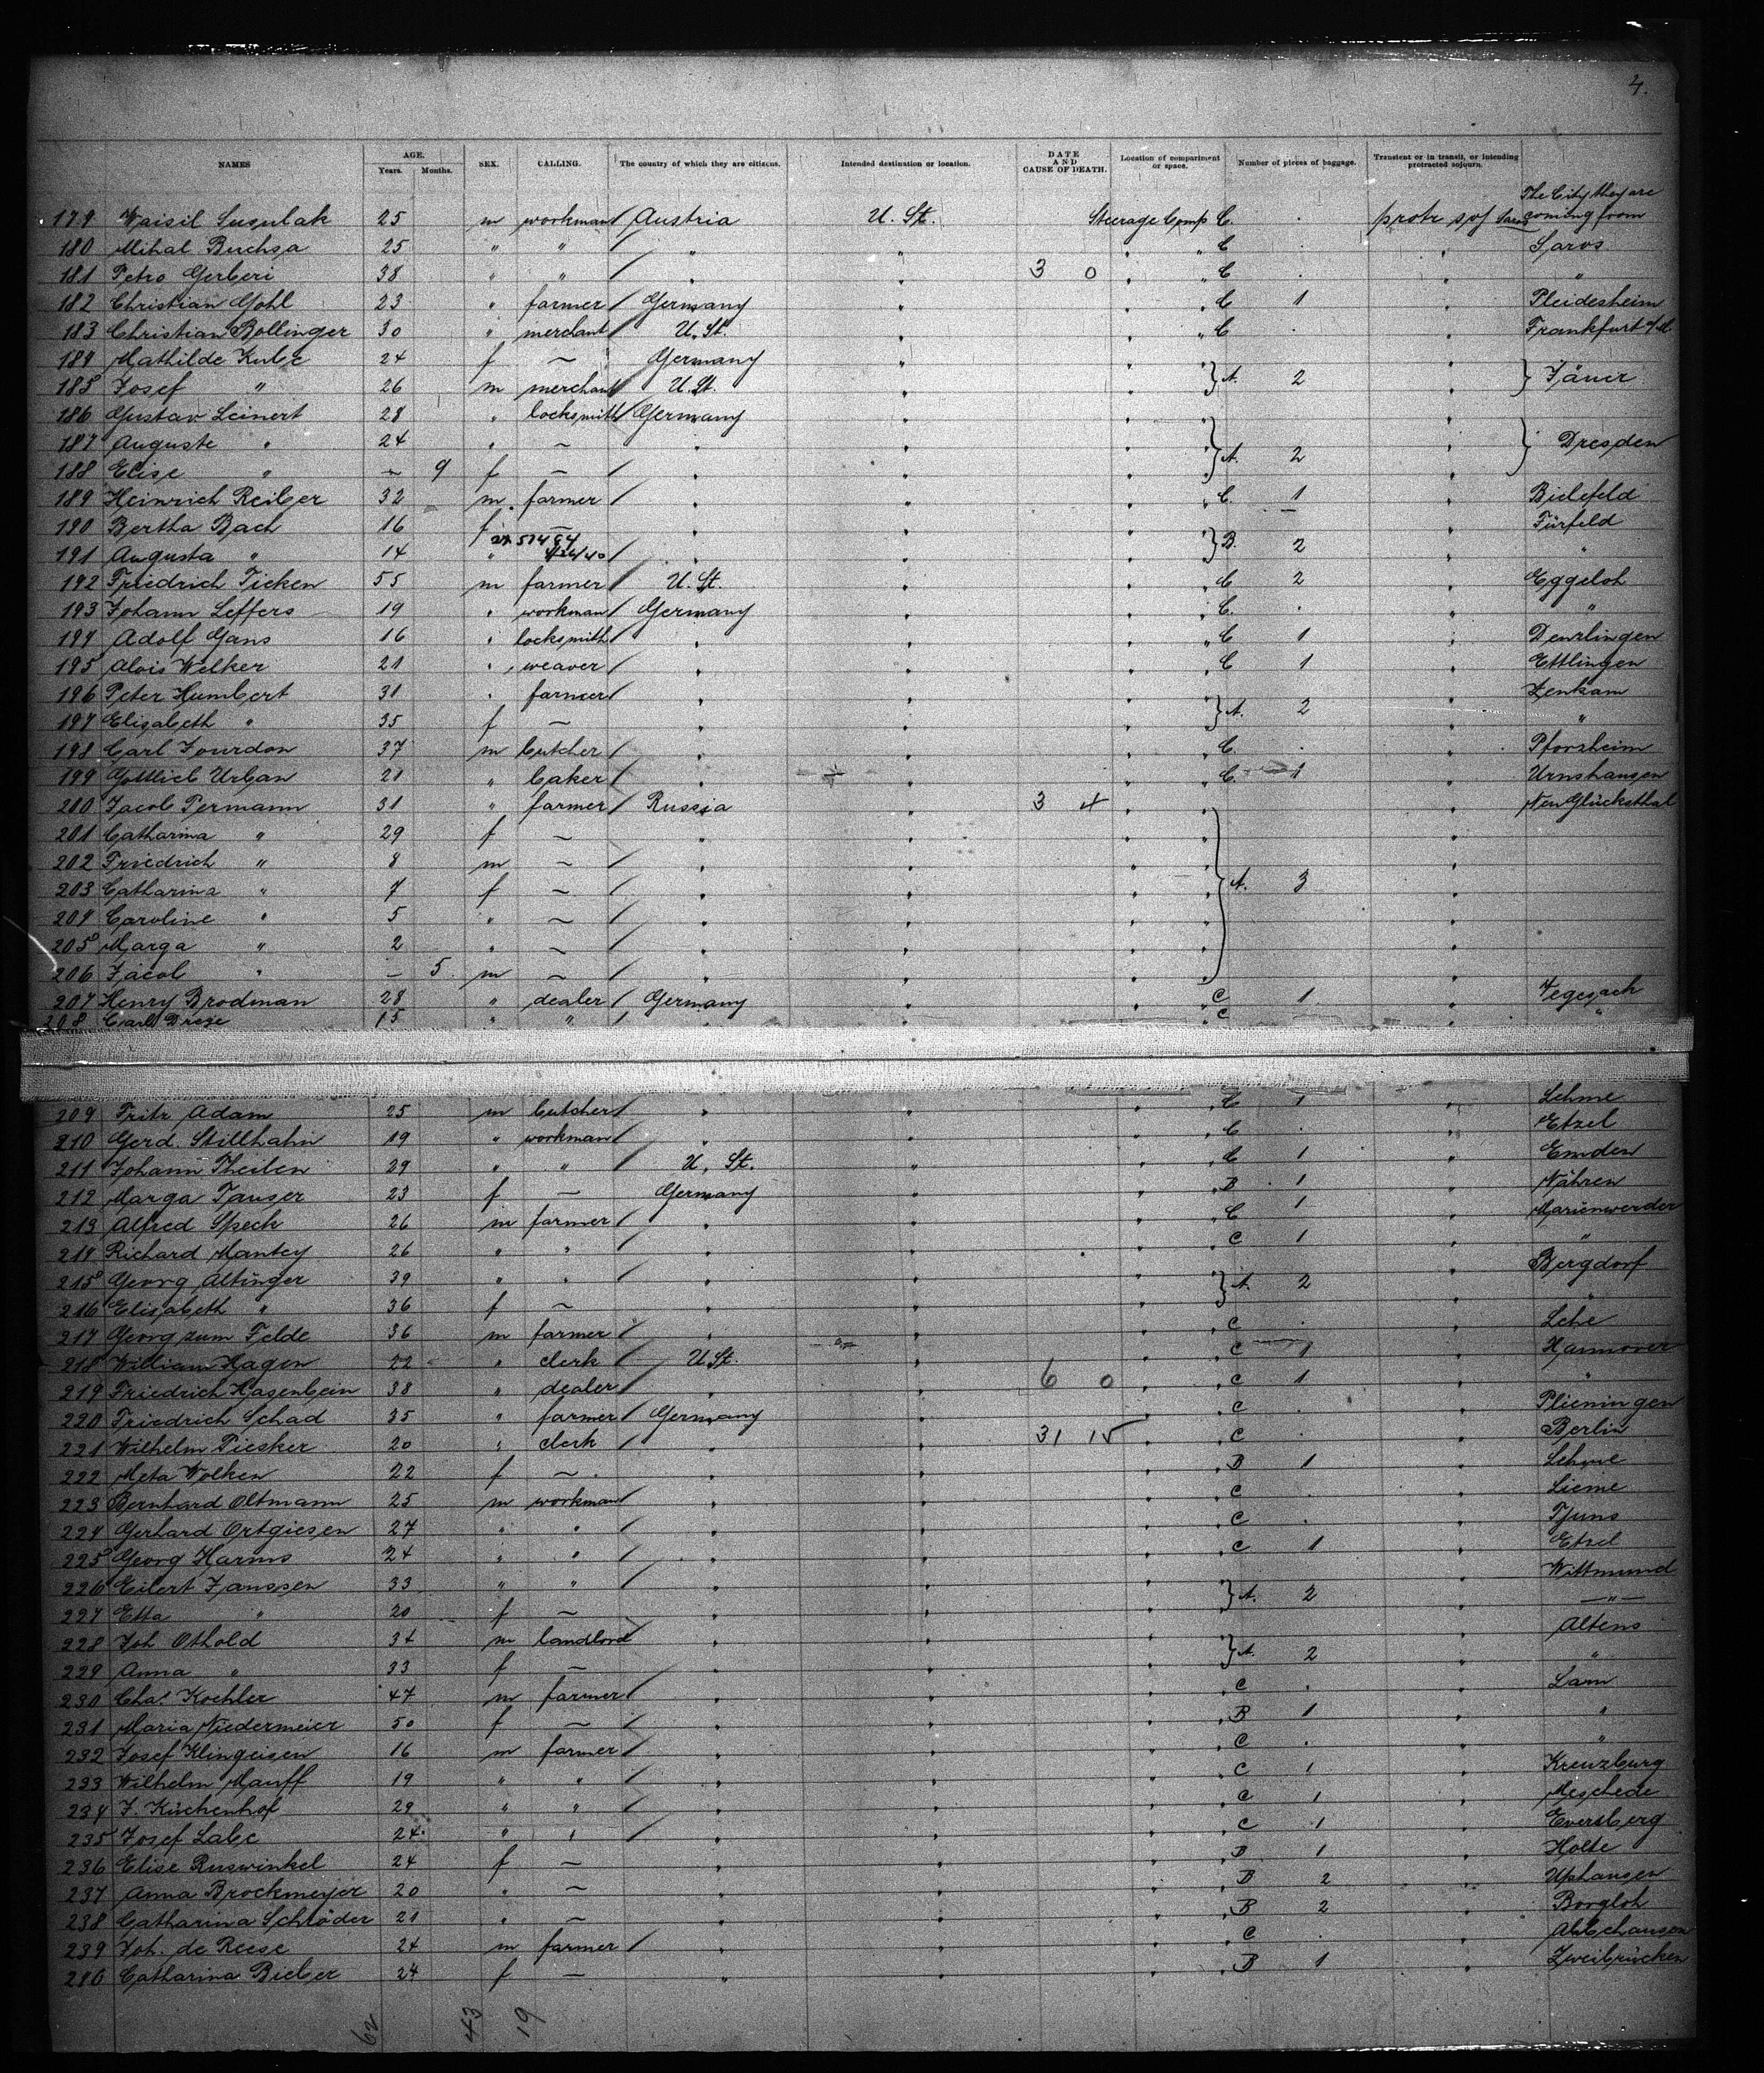 4.
NAMES AGE. Years. Months. SEX. CALLING. The country of which they are citizens. Intended destination or location. DATE AND CAUSE OF DEATH. Location of compartment or space. Number of pieces of baggage. Transient or in transit, or intending protracted sojourn.
The City they are coming from
179 Waisil Susulak 25 m workman Austria U. St. Steerage Comp C. protr soj Saros
180 Mihal Buchsa 25 " " " " C Saros
181 Petro Gerberi 38 " " " " 3 0 C "
182 Christian Gohl 23 " farmer Germany " C 1 Pleidesheim
183 Christian Bollinger 30 " merchant U. St. " C Frankfurt a/M
184 Mathilde Kube 24 f — Germany "
185 Josef " 26 m merchant U. St. " A. 2 Jäuer
186 Gustav Leinert 28 " locksmith Germany "
187 Auguste " 24 " — " " Dresden
188 Elise " — 9 f — " " A. 2
189 Heinrich Reiber 32 m. farmer " " C. 1 Bielefeld
190 Bertha Bach 16 f — " " Fürfeld
191 Augusta " 14 " " " B. 2 "
192 Friedrich Ticken 55 m farmer U. St. " C 2 Eggeloh
193 Johann Leffers 19 " workman Germany " C. "
194 Adolf Gans 16 " locksmith " " C 1 Denzlingen
195 Alois Welker 21 " weaver " " C 1 Ettlingen
196 Peter Humbert 31 " farmer " " Zenkam
197 Elisabeth " 35 f — " " A. 2 "
198 Carl Jourdon 37 m butcher " " C. Pforzheim
199 Gottlieb Urban 21 " baker " " C. 1 Urnshausen
200 Jacob Permann 31 " farmer Russia " 3 4 Neu Glücksthal
201 Catharina " 29 f — " "
202 Friedrich " 8 m — " "
203 Catharina " 7 f — " " A. 3
204 Caroline " 5 " — " "
205 Marga " 2 " — " "
206 Jacob " — 5 m — " "
207 Henry Brodman 28 " dealer Germany " C 1 Vegesach
208 Carl Dreze 15 " " " C "
209 Fritz Adam 25 m butcher " " C 1 Lehme
210 Gerd Stillhahn 19 " workman " " C Etzel
211 Johann Theilen 29 " " U. St. " C 1 Emden
212 Marga Tauser 23 f — Germany " B 1 Nähren
213 Alfred Speck 26 m farmer " " C 1 Marienwerder
214 Richard Mantey 26 " " " " C 1 "
215 Georg Altinger 39 " " " " A. 2 Bergdorf
216 Elisabeth " 36 f — " " "
217 Georg zum Felde 36 m farmer " " C Lehe
218 William Hagen 22 " clerk U St. " C 1 Hannover
219 Friedrich Hasenbein 38 " dealer " " 6 0 C 1 "
220 Friedrich Schad 35 " farmer Germany " C Plieningen
221 Wilhelm Piesker 20 " clerk " " 31 15 C Berlin
222 Meta Wolken 22 f — " " B 1 Lehme
223 Bernhard Oltmann 25 m workman " " C Lieme
224 Gerhard Ortgiesen 27 " " " " C Tjuns
225 Georg Harms 24 " " " " C 1 Etzel
226 Eilert Janssen 33 " " " " A. 2 Wittmund
227 Etta " 20 f — " " — " —
228 Joh Othold 34 m landlord " " A. 2 Altens
229 Anna " 33 f — " " "
230 Chas. Koehler 47 m farmer " " C Lam
231 Maria Niedermeier 50 f — " " B 1 "
232 Josef Klingeisen 16 m farmer " " C "
233 Wilhelm Mauff 19 " " " " C 1 Kreuzburg
234 J. Küchenhof 29 " " " " C 1 Meschede
235 Josef Labe 24 " " " " C 1 Eversberg
236 Elise Ruswinkel 24 f — " " B 1 Holte
237 Anna Brockmeyer 20 " — " " B 2 Uphausen
238 Catharina Schröder 21 " — " " B 2 Borgloh
239 Joh. de Reese 24 m farmer " " C Abbehausen
240 Catharina Bieber 24 f — " " B 1 Zweibrücken
62 43 19